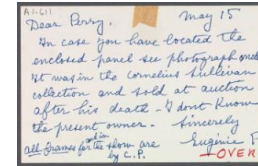 A1.611
May 15
Dear Perry.
In case you have located the
enclosed panel see photograph
It was in the Cornelius Sullivan
collection and sold at auction
after his death. I dont Know
the present owner. Sincerely
Eugénie
all Frames for the show are
by C.P.
OVER